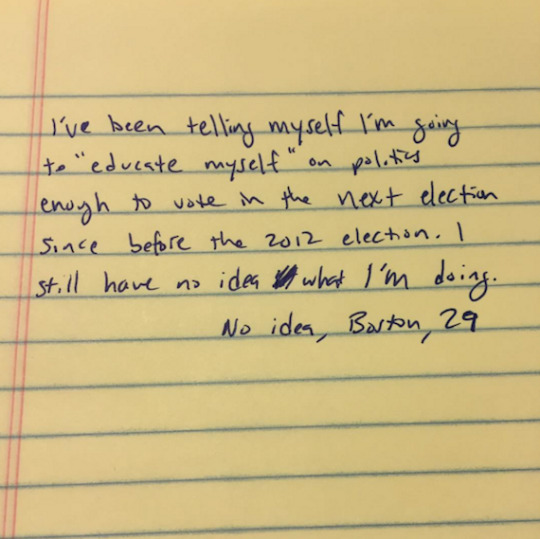 I've been telling myself I'm going
to "educate myself" on politics
enough to vote in the next election
since before the 2012 election. I
still have no idea what I'm doing.
No idea, Boston, 29